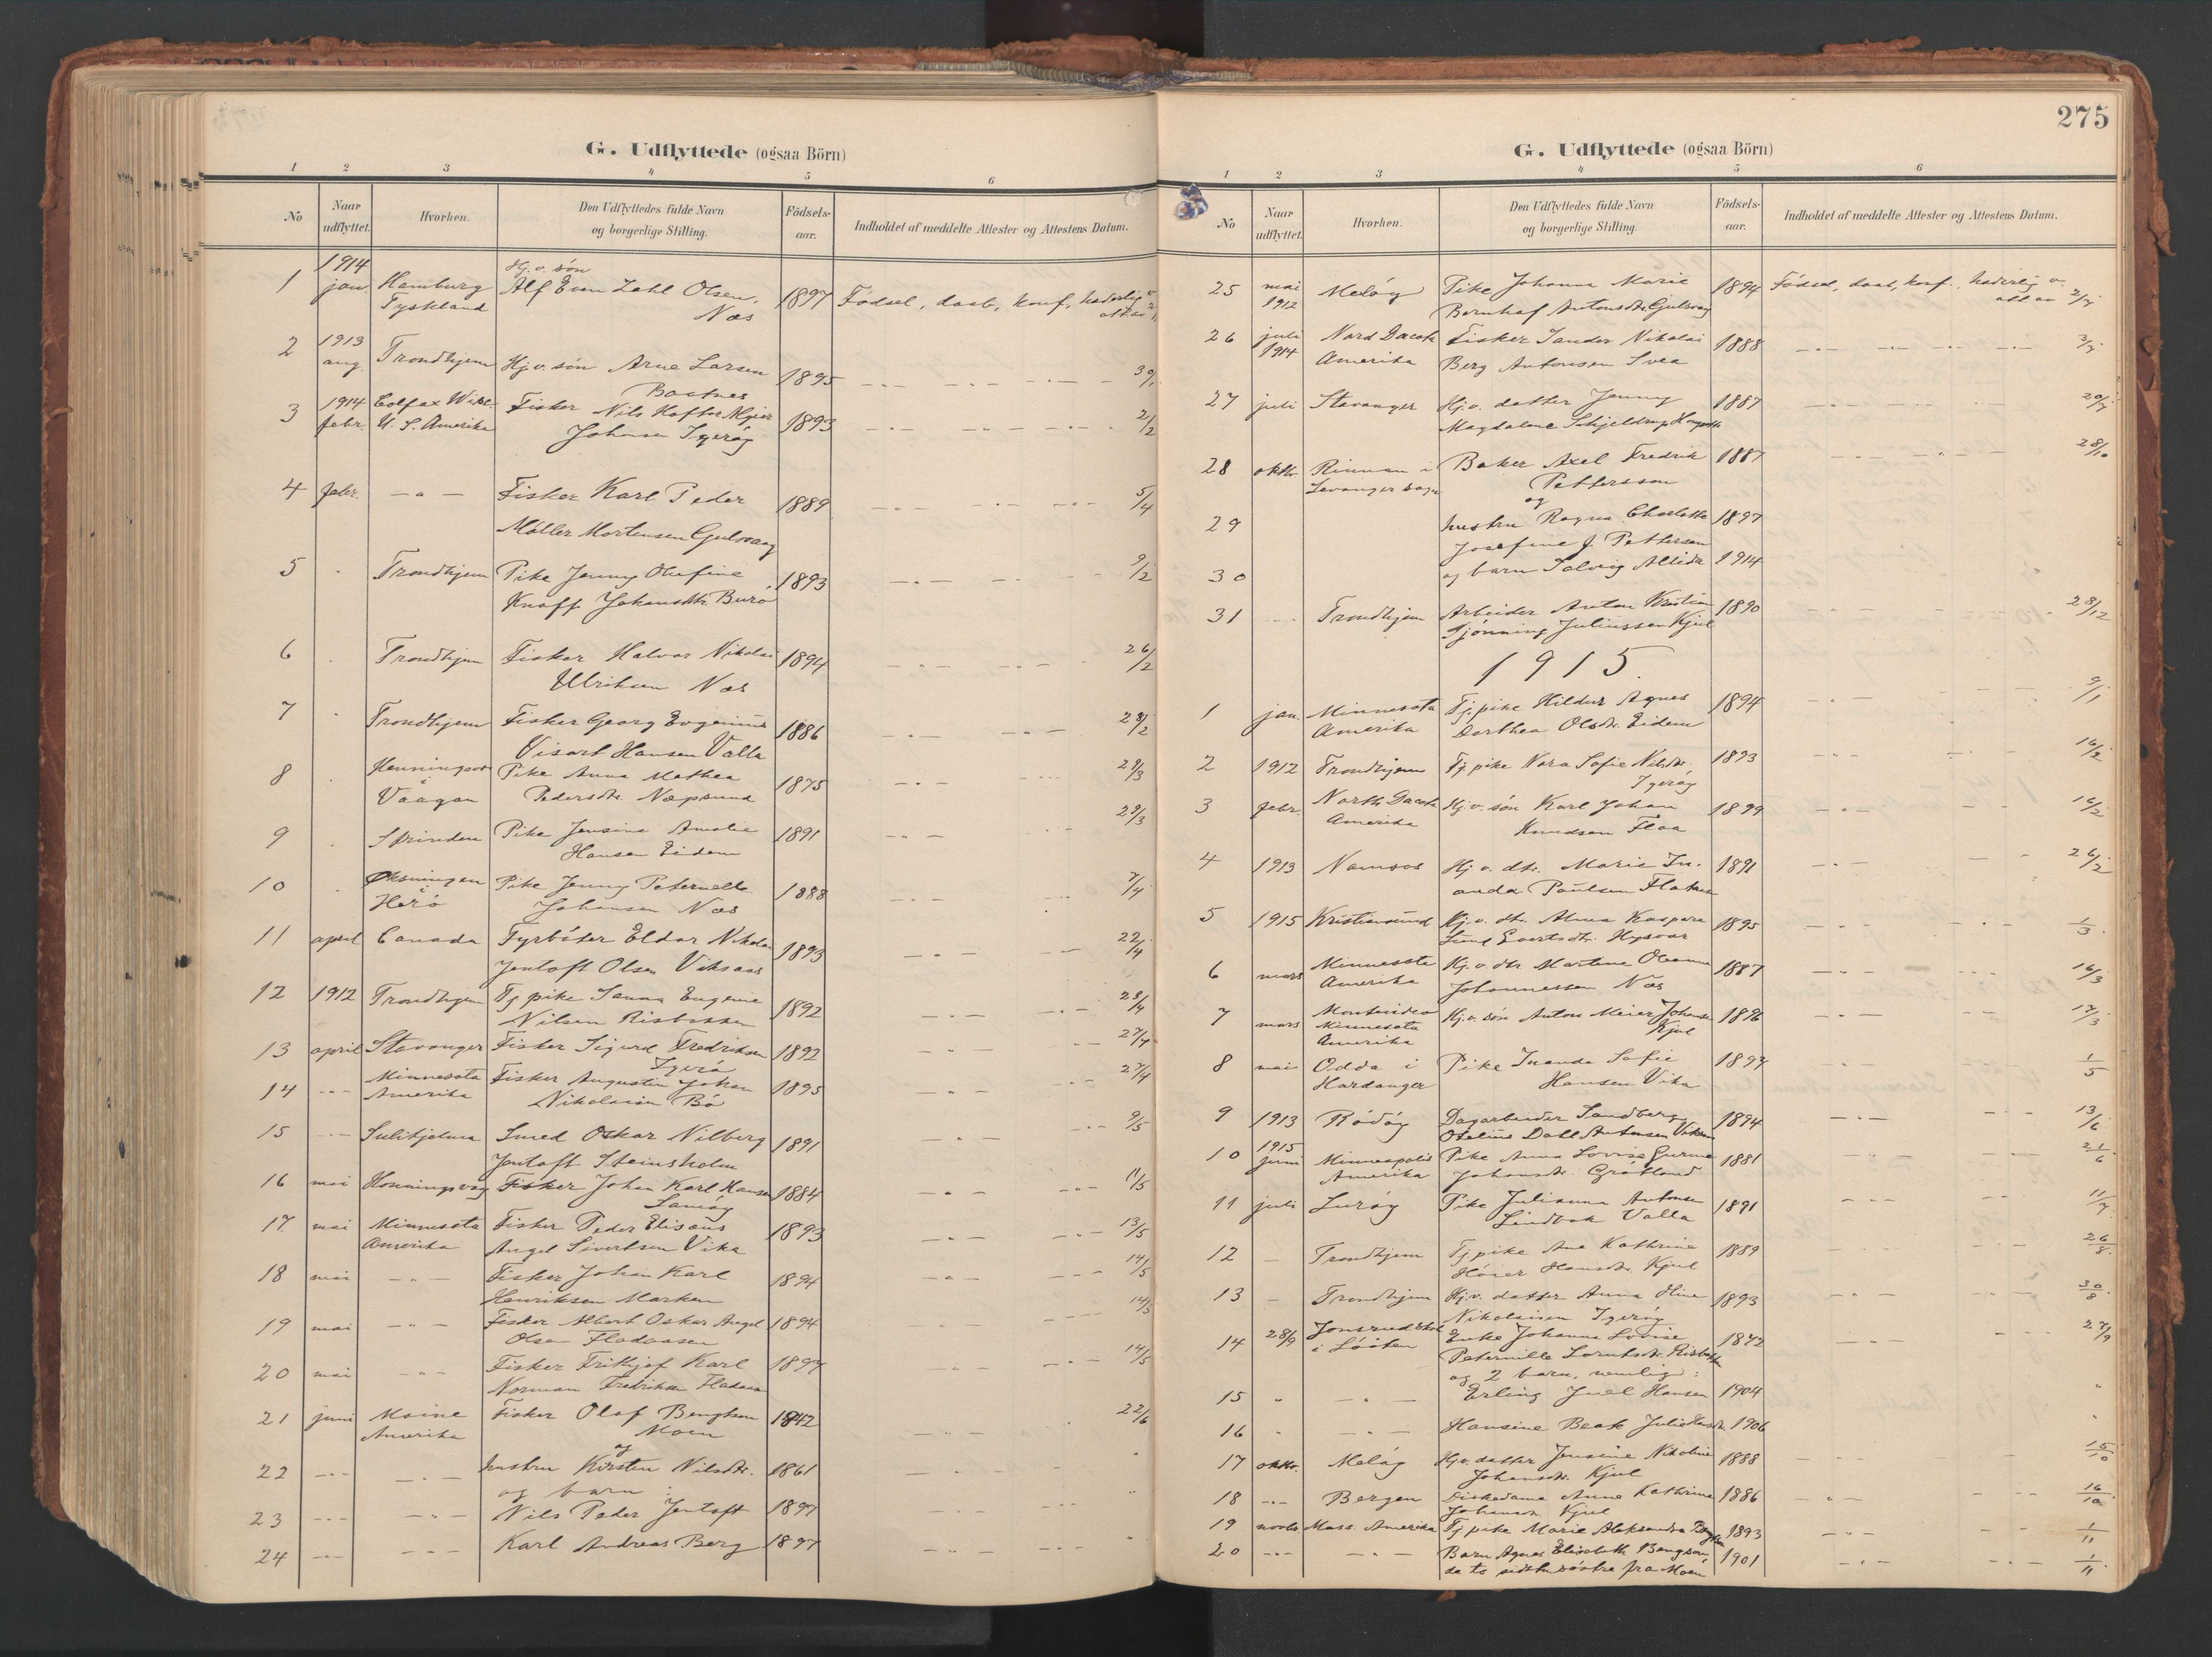 G. Udflyttede (ogsaa Börn)
1 2 3 4 5 6
No
Naar udflyttet.
Hvorhen.
Den Udflyttedes fulde Navn og borgerlige Stilling.
Födsels-aar.
Indholdet af meddelte Attester og Attestens Datum.
1914 Hj.v. søn
1 jan. Hamburg Alf Even Zahl Olsen, 1897 Fødsel, daab, konf., hæderlig v.
Tyskland Næs
2 1913 aug. Trondhjem Hj.v. søn Arne Larsen 1895 30/1
3 1914 febr. Colfax Wisc. Fisker Nils 1893 2/2
U. S. Amerika Johnsen Igerøy
4 febr. — " — Fisker Karl Peder 1889 5/4
Møller Mortensen Gulsvaag
5 Trondhjem Pike Jenny Olufine 1893 9/2
Knoff Johansdtr. Burø
6 Trondhjem Fisker Halvor Nikolai 1894 26/2
Ulriksen Næs
7 Trondhjem Fisker Georg Evgenius 1886 28/2
Visart Hansen Valla
8 Henningsvær Pike Anna Mathea 1875 29/3
i Vaagan Pedersdtr. Næpsund
9 Pike Jensine Amalie 1891 29/3
Hansen Eidem
10 Øksningen Pike Jenny Peternelle 1888 7/4
i Herø Johansen Næs
11 april Canada Fyrbøter Eldar Nikolai 1893 22/4
Jentoft Olsen Viksaas
12 1912 Trondhjem Tj. pike Sanna Eugenie 1892 23/4
Nilsen Risbakken
13 april Stavanger Fisker Sigurd Fredriksen 1892 27/4
Igerø
14 Minnesota Fisker Augustin Johan 1895 27/4
Amerika Nikolaisen Bø
15 Sulitjelma Smed Oskar Nilberg 1891 9/5
Jentoft Steinsholm
16 mai Honningsvåg Fisker Johan Karl Hansen 1884 11/5
17 mai Minnesota Fisker Peder Elisæus 1893 13/5
Amerika Angel Sivertsen Vika
18 mai — " — Fisker Johan Karl 1894 14/5
Henriksen Marken
19 mai — " — Fisker Albert Oskar Angel 1894 14/5
Olsen Fladaasen
20 mai — " — Fisker Frithjof Karl 1897 14/5
Norman Fredriksen Fladaas
21 juni Maine Fisker Olaf Bengtson 1842 22/6
Amerika Moen
og
22 hustru Kirsten Nilsdtr. 1861
og barn :
23 Nils Peder Jentoft 1897
24 Karl Andreas Berg 1897
275
G. Udflyttede (ogsaa Börn)
1 2 3 4 5 6
No
Naar udflyttet.
Hvorhen.
Den Udflyttedes fulde Navn og borgerlige Stilling.
Födsels-aar.
Indholdet af meddelte Attester og Attestens Datum.
25 mai 1912 Meløy Pike Johanna Marie 1894 Fødsel, daab, konf., hæderlig v.
Antonsdtr. Gulsvåg
26 juli 1914 Nord Dacota Fisker Sandor Nikolai 1888 3/7
Amerika Berg Antonsen Svea
27 juli Stavanger Hj.v. datter Jenny 1887 20/7
Magdalene Schjeldrup
28 oktbr. Rinnan i Baker Axel Fredrik 1887 28/10
Levanger sogn Pettersson
og
29 hustru Ragna Charlotte 1897
Josefine J. Pettersen
30 og barn Solveig 1914
31 Trondhjem Arbeider Anton Kristian 1890 28/12
Tjønning Juliussen Kjul
1915.
1 jan. Minnesota Tj. pike Hildur Agnes 1894 9/1
Amerika Dorthea Olsdtr. Eidem
2 1912 Trondhjem Tj. pike Nora Sofie Nilsdtr. 1893 16/2
Igerøy
3 febr. North Dacota Hj.v. søn Karl Johan 1899 16/2
Amerika Knudsen Floa
4 1913 Namsos Hj.v. dtr. Marie In- 1891 26/2
anda Paulsen
5 1915 Kristiansund Hj.v. dtr. Alma Kaspara 1895 1/3
Evertsdtr. Hysvær
6 mars Minnesota Hj.v. dtr. Martine Oleanna 1887 16/3
Amerika Johannessen Næs
7 mars Montevideo Hj.v. søn Anton Meier Johansen 1896 17/3
Minnesota Kjul
Amerika
8 mai Odda i Pike Inanda Sofie 1897 1/5
Hardanger Hansen Vika
9 1913 Rødøy Dagarbeider Sandberg 1894 13/6
Otelius Dahl Antonsen
10 1915 juni Minneapolis Pike Anna Lovise Gurine 1881 21/6
Amerika Johansdtr. Grøtland
11 juli Lurøy Pike Julianna Antonse 1891 11/7
Lindbak Valla
12 — Trondhjem Tj. pike Ane Kathrine 1889 26/8
Høier Hansdtr. Kjul
13 — Trondhjem Hj.v. datter Anna Oline 1893 30/8
Nikolaisen Igerøy
14 28/9 Enke Johanna Lovise 1872 27/9
i Løiten Peternille
og 2 barn, nemlig :
15 " — " — Erling Juel Hansen 1904
16 " — " — Hansine Beak 1906
17 oktbr. Meløy Hj.v. datter Jensine Nikoline 1888 15/10
Johansdtr. Kjul
18 Bergen Diskedame Anne Kathrine 1886 16/10
Johansdtr. Kjul
19 novbr. Mass. Amerika Tj. pike Marie Aleksandra 1893 1/11
20 — " — Barn Agnes Elisabeth Bengtson, 1901 1/11
de to sidste søstre fra Moen